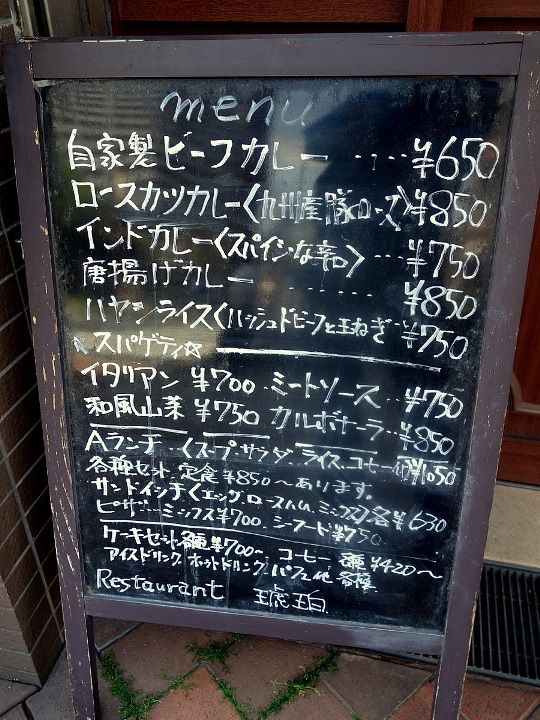 menu
自家製ビーフカレー ‥‥ ¥650
ロースカツカレー〈九州産豚ロース〉¥850
インドカレー〈スパイシーな辛口〉‥‥ ¥750
唐揚げカレー ‥‥‥ ¥850
ハヤシライス〈ハッシュドビーフと玉ねぎ ¥750
スパゲティ☆
イタリアン ¥700 ミートソース ¥750
和風山菜 ¥750 カルボナーラ ¥850
Aランチ‥〈スープ.サラダ.ライス.コーヒー付¥1050
各種セット定食¥850〜あります。
サンドイッチ〈エッグ.ロースハム.ミックス〉各¥630
ピザ‥ミックス¥700.シーフード¥750
ケーキセット各種¥700〜 コーヒー各種 ¥420〜
アイスドリンク.ホットドリンク.パフェ他各種
Restaurant 琥珀